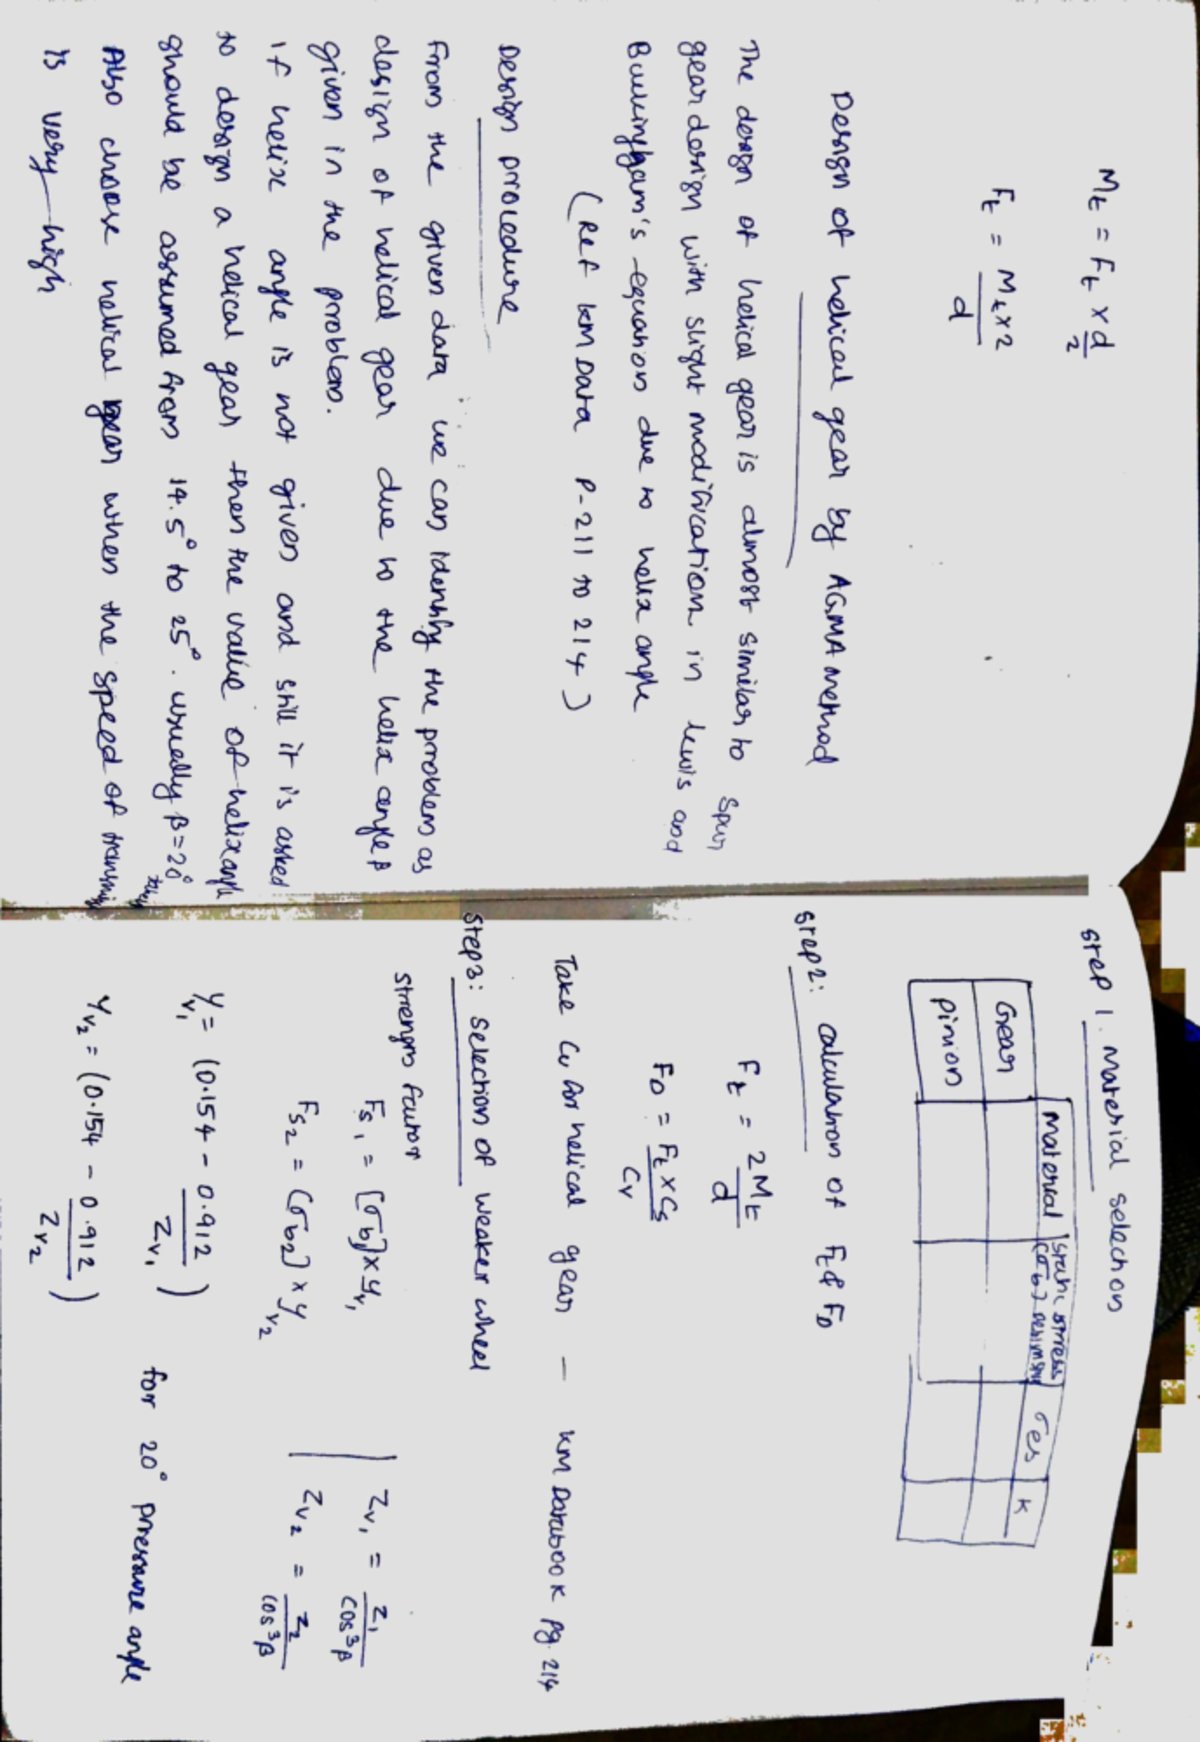 Mt = Ft × d/2
Ft = Mt×2/d
Design of helical gear by AGMA method
The design of helical gear is almost similar to spur
gear design with slight modification in lewis and
Buckingham's equation due to helix angle
(Ref km Data P-211 to 214)
Design procedure
From the given data we can identify the problem as
design of helical gear due to the helix angle β
given in the problem.
If helix angle is not given and still it is asked
to design a helical gear then the value of helix angle
should be assumed from 14.5° to 25°. usually β=20°
Also choose helical gear when the speed of
is very high
Step 1. Material selection
Material | static stress [σb] | σes | K
Gear
Pinion
Step2: calculation of Ft & FD
Ft = 2Mt/d
FD = Ft×Cs/Cv
Take Cv for helical gear — KM Databook Pg. 214
Step3: Selection of weaker wheel
strength factor
Fs1 = [σb1]×yv1 | Zv1 = Z1/cos³β
Fs2 = [σb2]×yv2 | Zv2 = Z2/cos³β
yv1 = (0.154 - 0.912/Zv1)
yv2 = (0.154 - 0.912/Zv2) for 20° pressure angle